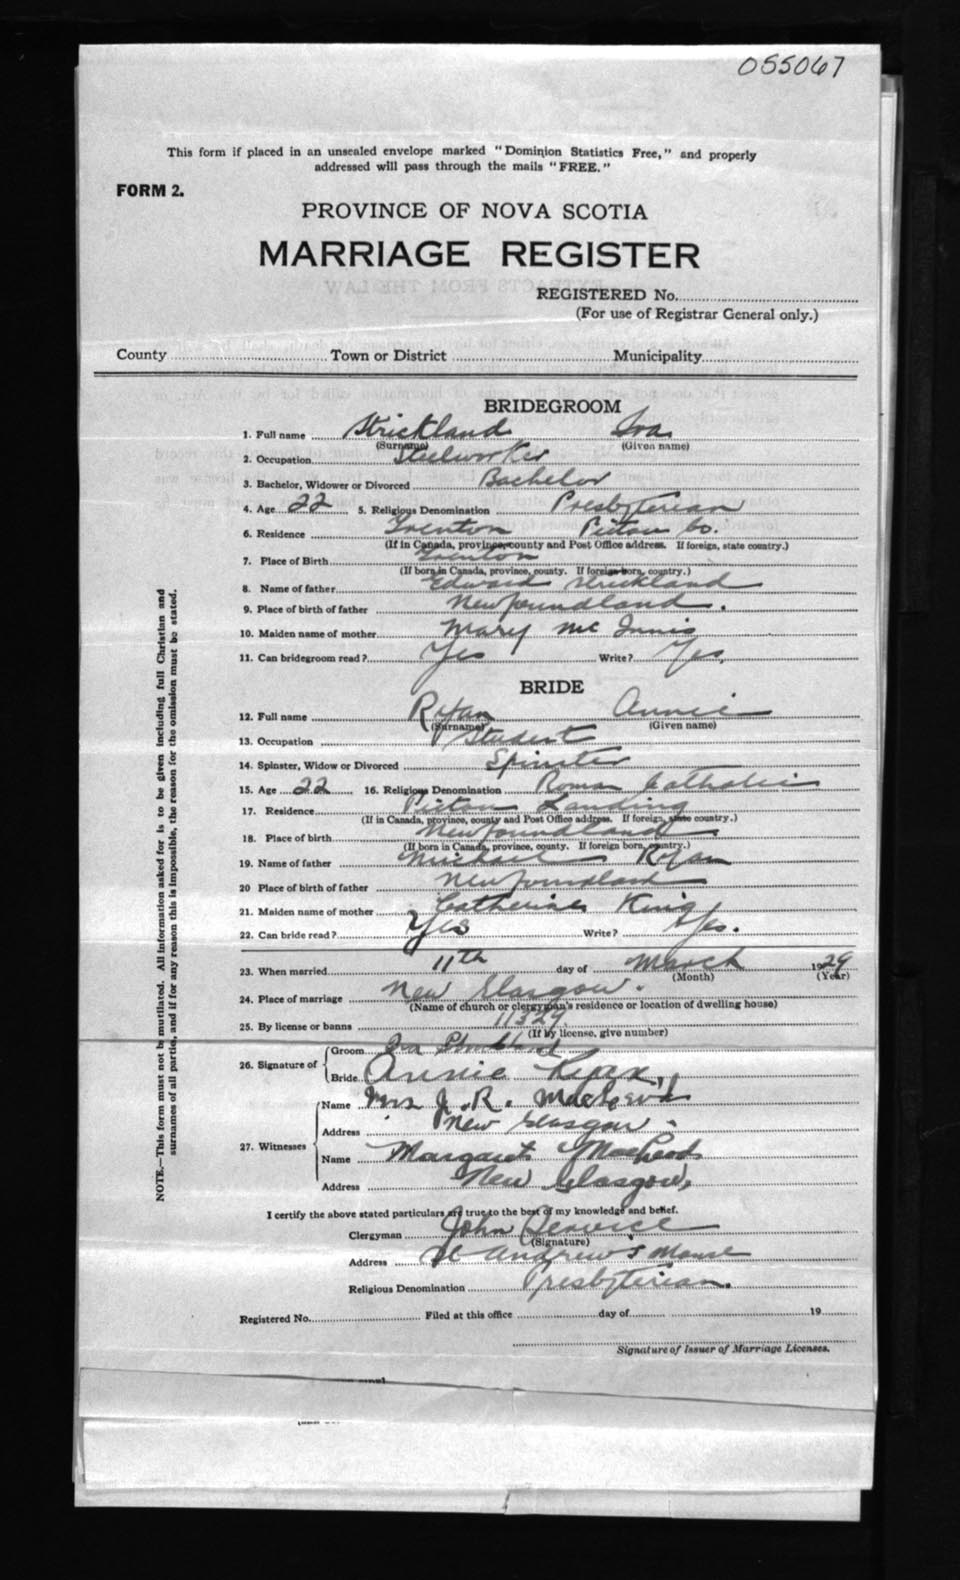 055067
This form if placed in an unsealed envelope marked "Dominion Statistics Free," and properly
addressed will pass through the mails "FREE."
FORM 2.
PROVINCE OF NOVA SCOTIA
MARRIAGE REGISTER
REGISTERED No.
(For use of Registrar General only.)
County Town or District Municipality
BRIDEGROOM
1. Full name Strickland Ira
(Surname) (Given name)
2. Occupation Steelworker
3. Bachelor, Widower or Divorced Bachelor
4. Age 22 5. Religious Denomination Presbyterian
6. Residence Trenton Pictou Co.
(If in Canada, province, county and Post Office address. If foreign, state country.)
7. Place of Birth Trenton
(If born in Canada, province, county. If foreign born, country.)
8. Name of father Edward Strickland
9. Place of birth of father Newfoundland.
10. Maiden name of mother Mary Mc Innis
11. Can bridegroom read? Yes Write? Yes,
BRIDE
12. Full name Ryan Annie
(Surname) (Given name)
13. Occupation Student
14. Spinster, Widow or Divorced Spinster
15. Age 22 16. Religious Denomination Roman Catholic
17. Residence Pictou Landing
(If in Canada, province, county and Post Office address. If foreign, state country.)
18. Place of birth Newfoundland
(If born in Canada, province, county. If foreign born, country.)
19. Name of father Michael Ryan
20 Place of birth of father Newfoundland
21. Maiden name of mother Catherine King
22. Can bride read? Yes Write? Yes.
23. When married 11th day of March 1929
(Month) (Year)
24. Place of marriage New Glasgow.
(Name of church or clergyman's residence or location of dwelling house)
25. By license or banns 11329
(If by license, give number)
26. Signature of Groom Ira Strickland
Bride Annie Ryan
27. Witnesses Name Mrs J. R. MacLeod
Address New Glasgow
Name Margaret MacLeod
Address New Glasgow,
I certify the above stated particulars are true to the best of my knowledge and belief.
Clergyman John Service
(Signature)
Address St Andrew's Manse
Religious Denomination Presbyterian.
Registered No. Filed at this office day of 19
Signature of Issuer of Marriage Licenses.
NOTE.—This form must not be mutilated. All information asked for is to be given including full Christian and
surnames of all parties, and if for any reason this is impossible, the reason for the omission must be stated.